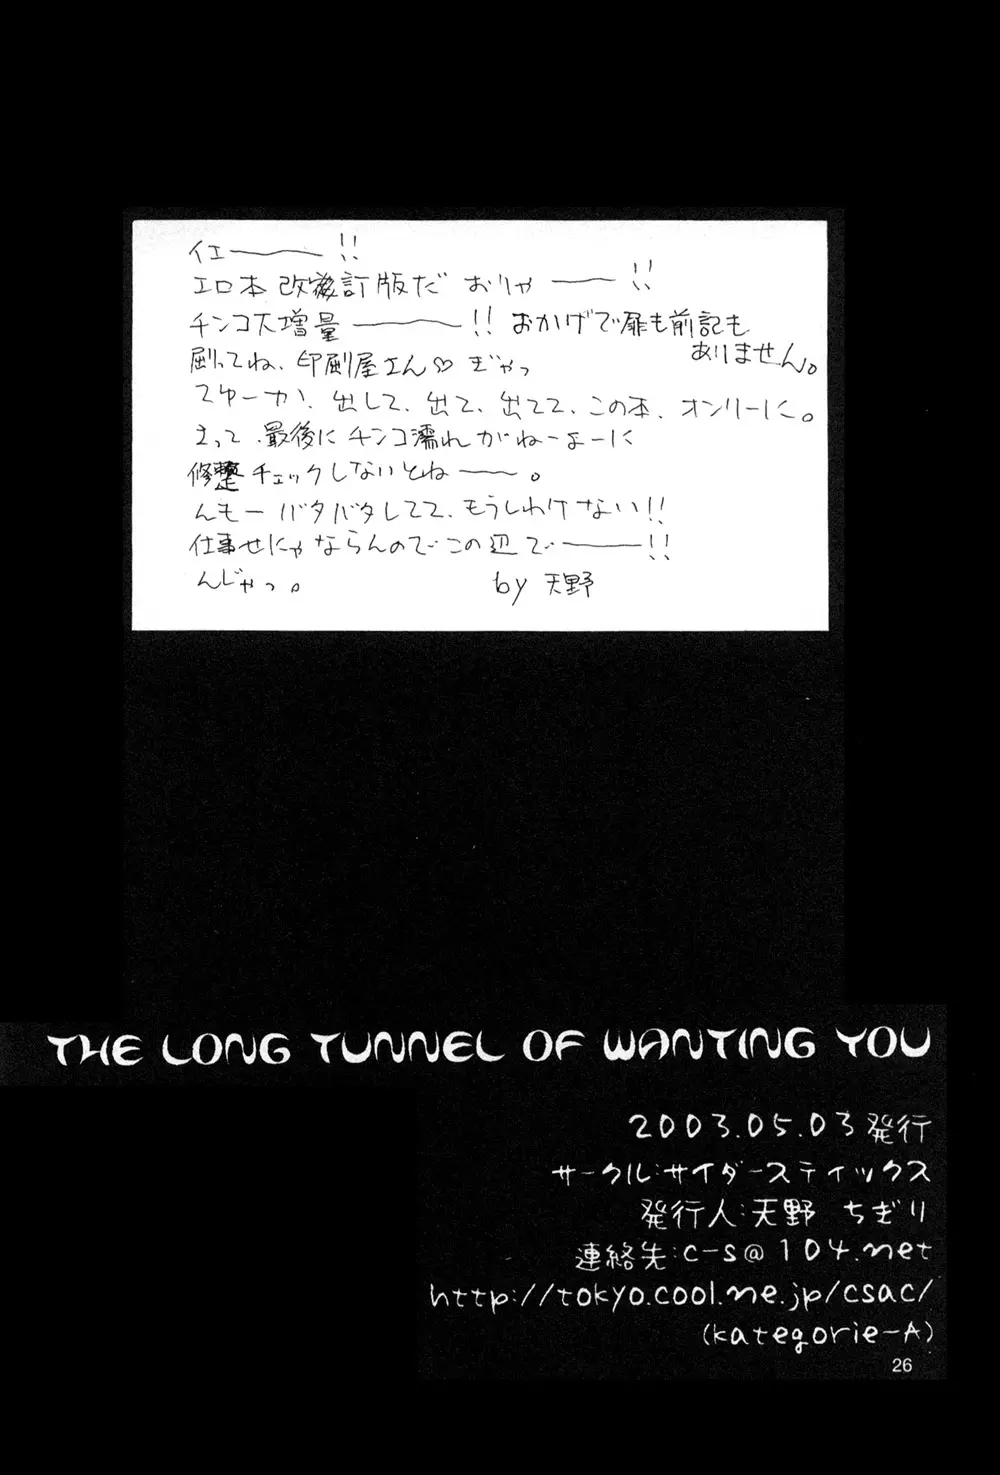 イエ――!!
エロ本 改訂版だ おりゃ――!!
チンコ大増量――!! おかげで扉も前記も
ありません。
刷ってね、印刷屋さん♡ ぎゃっ
てゆーか、出して、出て、出てて、この本、オンリーに。
さって、最後にチンコ濡れがねーよーに
修整チェックしないとね――。
んもーバタバタしてて、もうしわけない!!
仕事せにゃならんのでこの辺で――!!
んじゃっ。 by 天野
THE LONG TUNNEL OF WANTING YOU
2003.05.03発行
サークル:サイダースティックス
発行人:天野 ちぎり
連絡先:c-s@104.net
http://tokyo.cool.ne.jp/csac/
(kategorie-A)
26